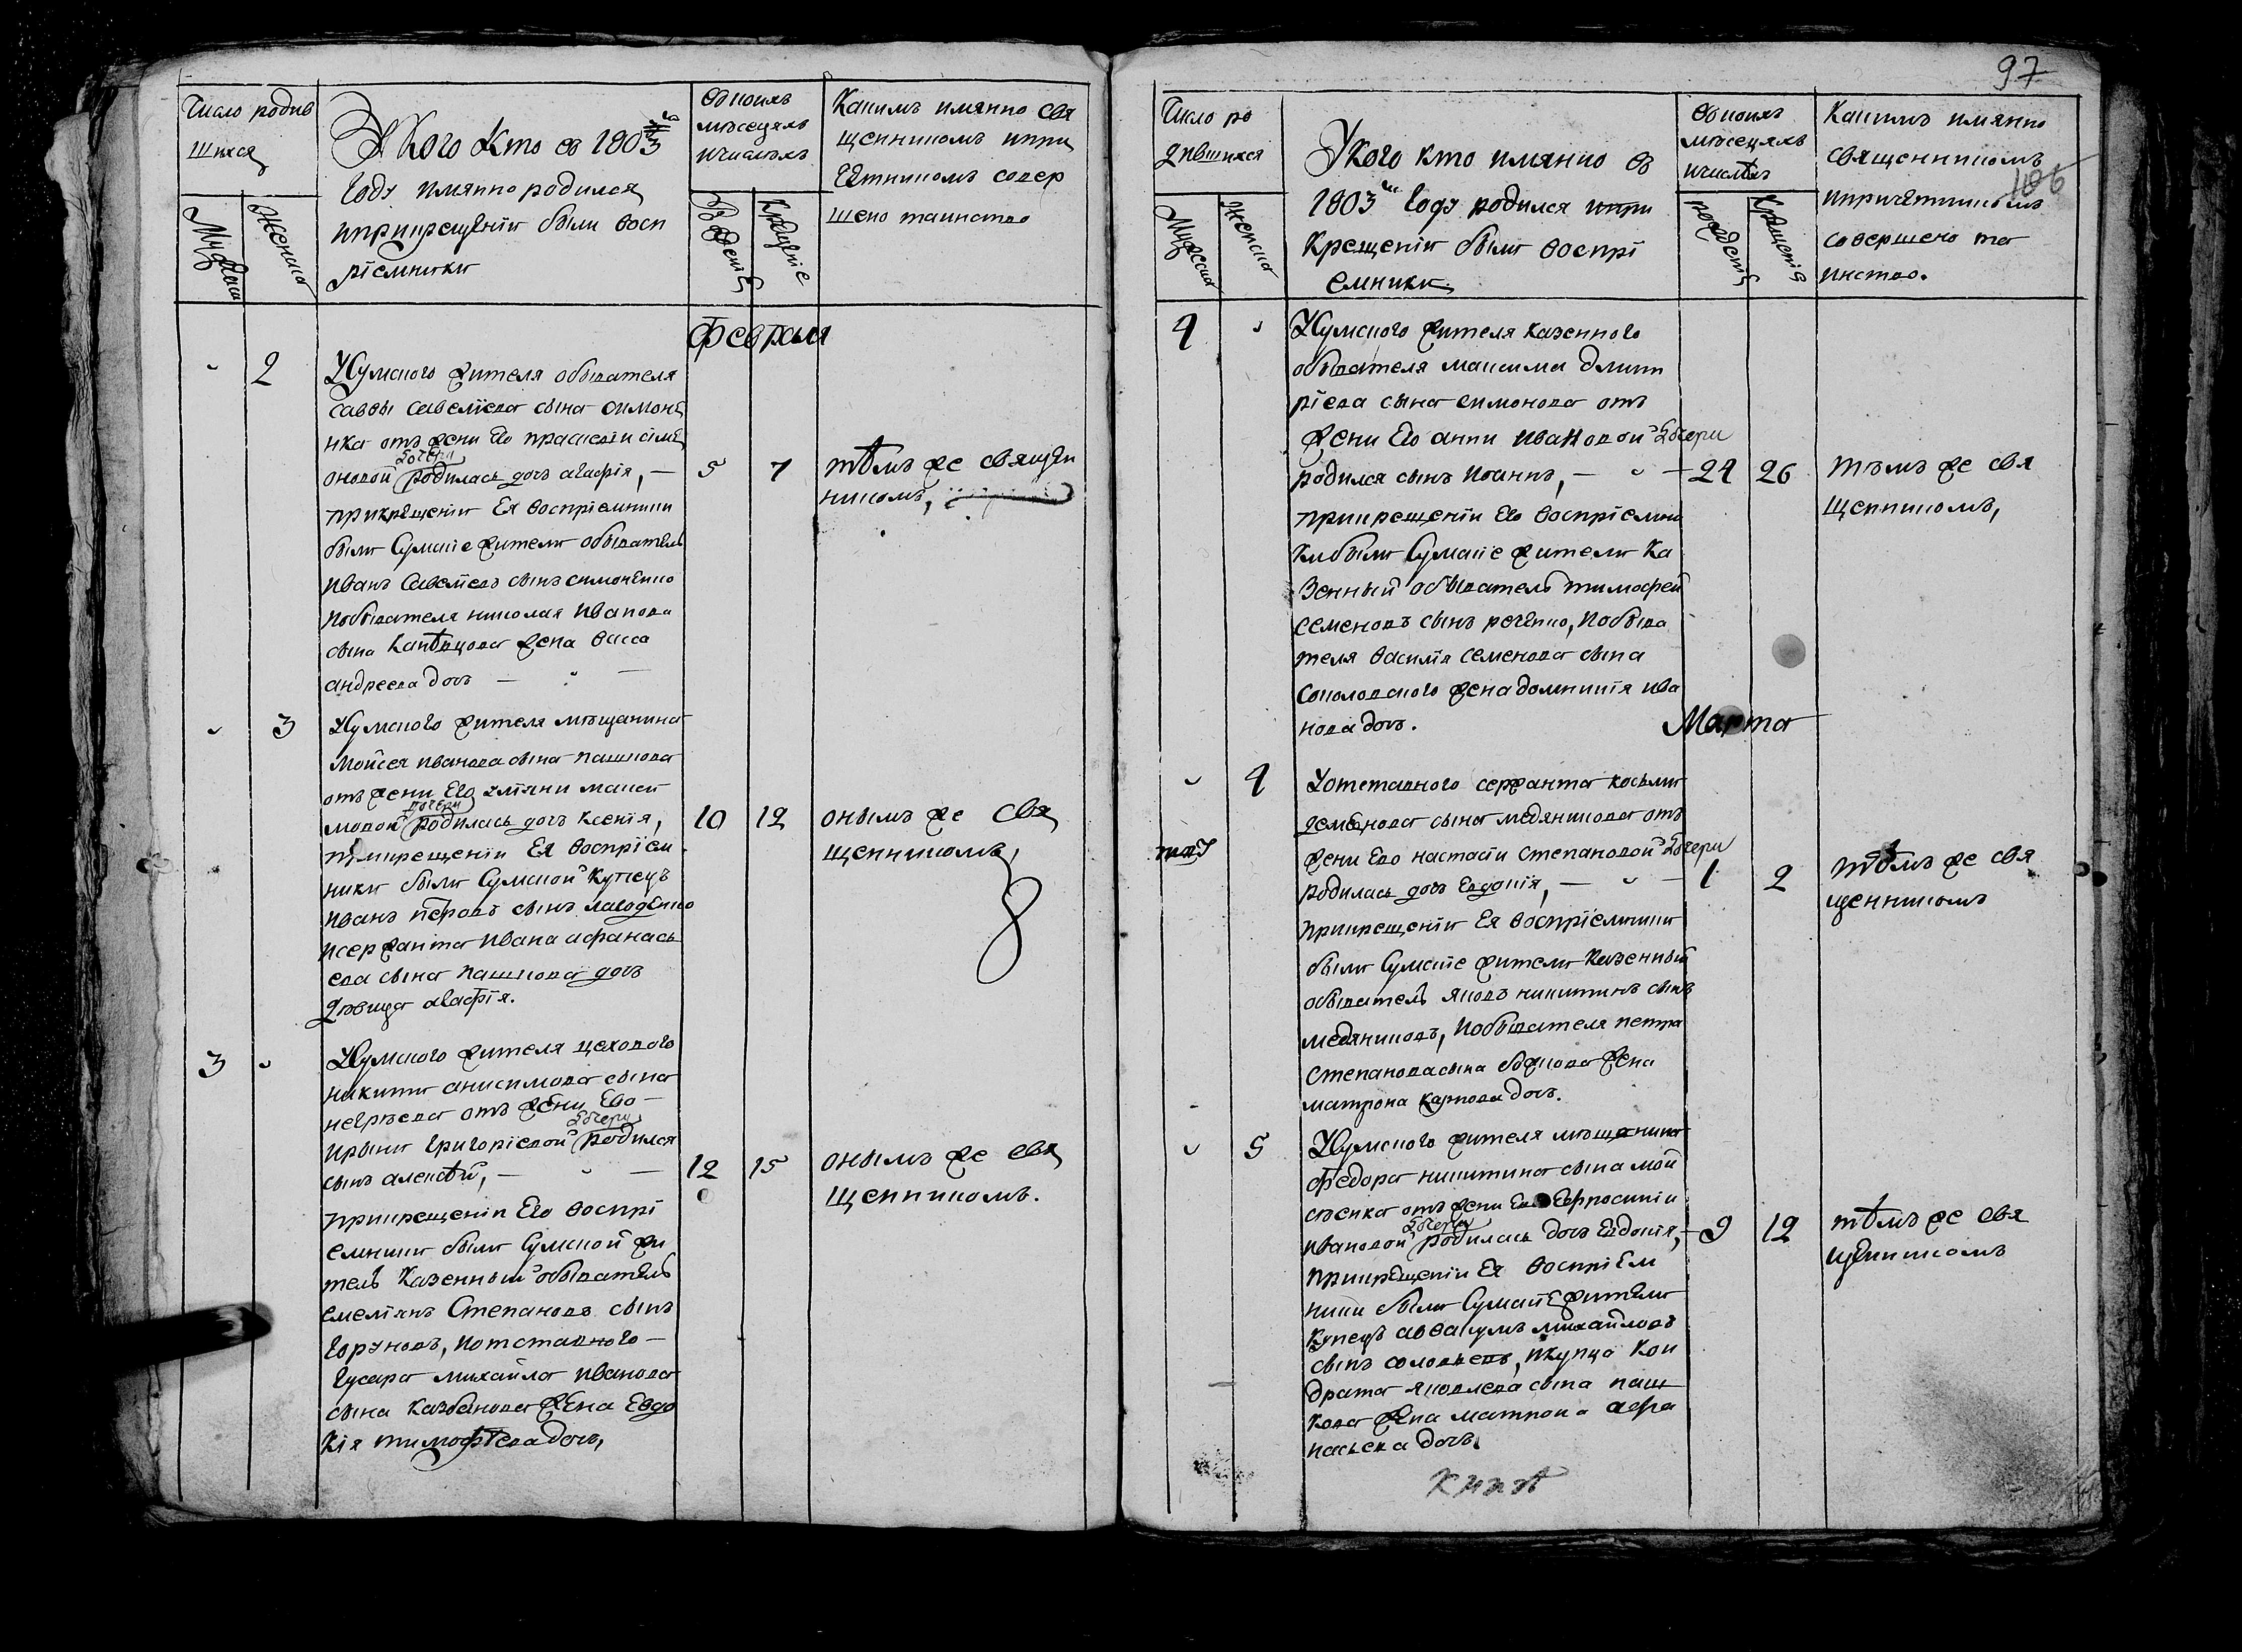 97
106
Число родив
шихся
Мужеска
Женска
У Кого Кто въ 1803м
Году имянно родился
иприкрещенїи были восп
рїемники
Вкоихъ
мѣсецахъ
ичислахъ
Рожденїе
Крещенїе
Какимъ имянно свя
щенникомъ ипри
четникомъ совер
шено таинство
Февраля
2
У Сумского жителя обывателя
саввы савелїева сына симоне
нка отъ жени Его праскевїи симе
Дочери
оновой родилась дочь агафїя,
прикрещенїи Ея воспрїемники
были Сумскїе жители обыватель
иванъ савелїевъ сынъ симоненко
иобывателя николая иванова
сына жена васса
андреева дочь
5
7
тѣмъ же священ
никомъ,
3
У Сумского жителя мѣщанина
Мойсея иванова сына пашкова
отъ жени Его улїяни макси
дочери
мовой родилась дочь ксенїя,
прикрещенїи Ея воспрїем
ники были Сумской купецъ
иванъ петровъ сынъ лагоденко
исержанта ивана афанасъ
ева сына пашкова дочь
дѣвица агафїя.
10
12
онымъ же свя
щенникомъ,
3
У Сумского жителя цехового
никити анисимова сына
отъ жени Его
Дочери
ирыни григорїевой родился
сынъ алексѣй,
прикрещенїи Его воспрї
емники были Сумской жи
тель Казенный обыватель
емелїянъ Степановъ сынъ
горуновъ, иотставного
гусара михайла иванова
сына казбанова жена Евдо
кїя тимофѣева дочь,
12
15
онымъ же свя
щенникомъ.
Число ро
дившихся
Мужеска
Женска
У кого кто имянно въ
1803м Году родился ипри
Крещенїи были воспрї
емники
Вкоихъ
мѣсецахъ
ичислѣхъ
рожденїе
Крещенїя
Какимъ имянно
священникомъ
ипричетникомъ
совершено та
инство.
4
У Сумского жителя казенного
обывателя максима дмит
рїева сына симонова отъ
жени Его анни ивановой Дочери
родился сынъ иоаннъ,
прикрещенїи Его воспрїемни
ки были Сумскїе жители Ка
зенный обыватель тимофей
семеновъ сынъ реченко, иобыва
теля василїя семенова сына
соколовского жена домникїя ива
нова дочь.
24
26
тѣмъ же свя
щенникомъ,
Марта
4
У отставного сержанта косьми
сына медяникова отъ
жени Его настасїи степановой Дочери
родилась дочь Евдокїя,
прикрещенїи Ея воспрїемники
были Сумскїе жители Казенный
обыватель яковъ никитинъ сынъ
медяниковъ, иобывателя петра
степанова сына жена
матрона карпова дочь.
1
2
тѣмъ же свя
щенникомъ
5
У Сумского жителя мѣщанина
федора никитина сына мой
сѣенка отъ жени Его Ефросинїи
Дочери
ивановой родилась дочь Евдокїя,
прикрещенїи Ея воспрїем
ники были Сумскїе жители
купецъ аввакумъ михайловъ
сынъ икупца кон
драта яковлева сына паш
кова жена матрона афа
насьева дочь,
9
12
тѣмъ же свя
щенникомъ